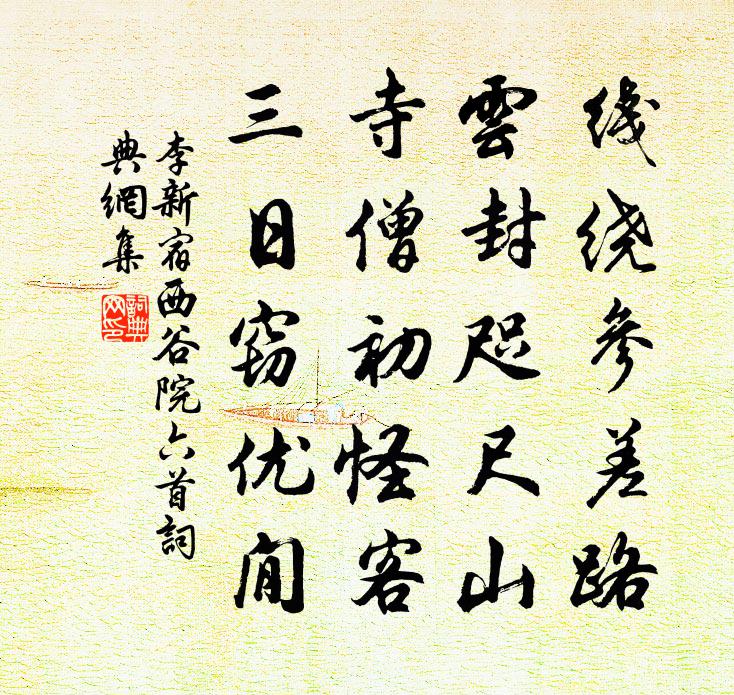 线绕参差路
雲封咫尺山
寺僧初怪客
三日窃优闲
李新宿西谷院六首詞
典網集
詞典网印